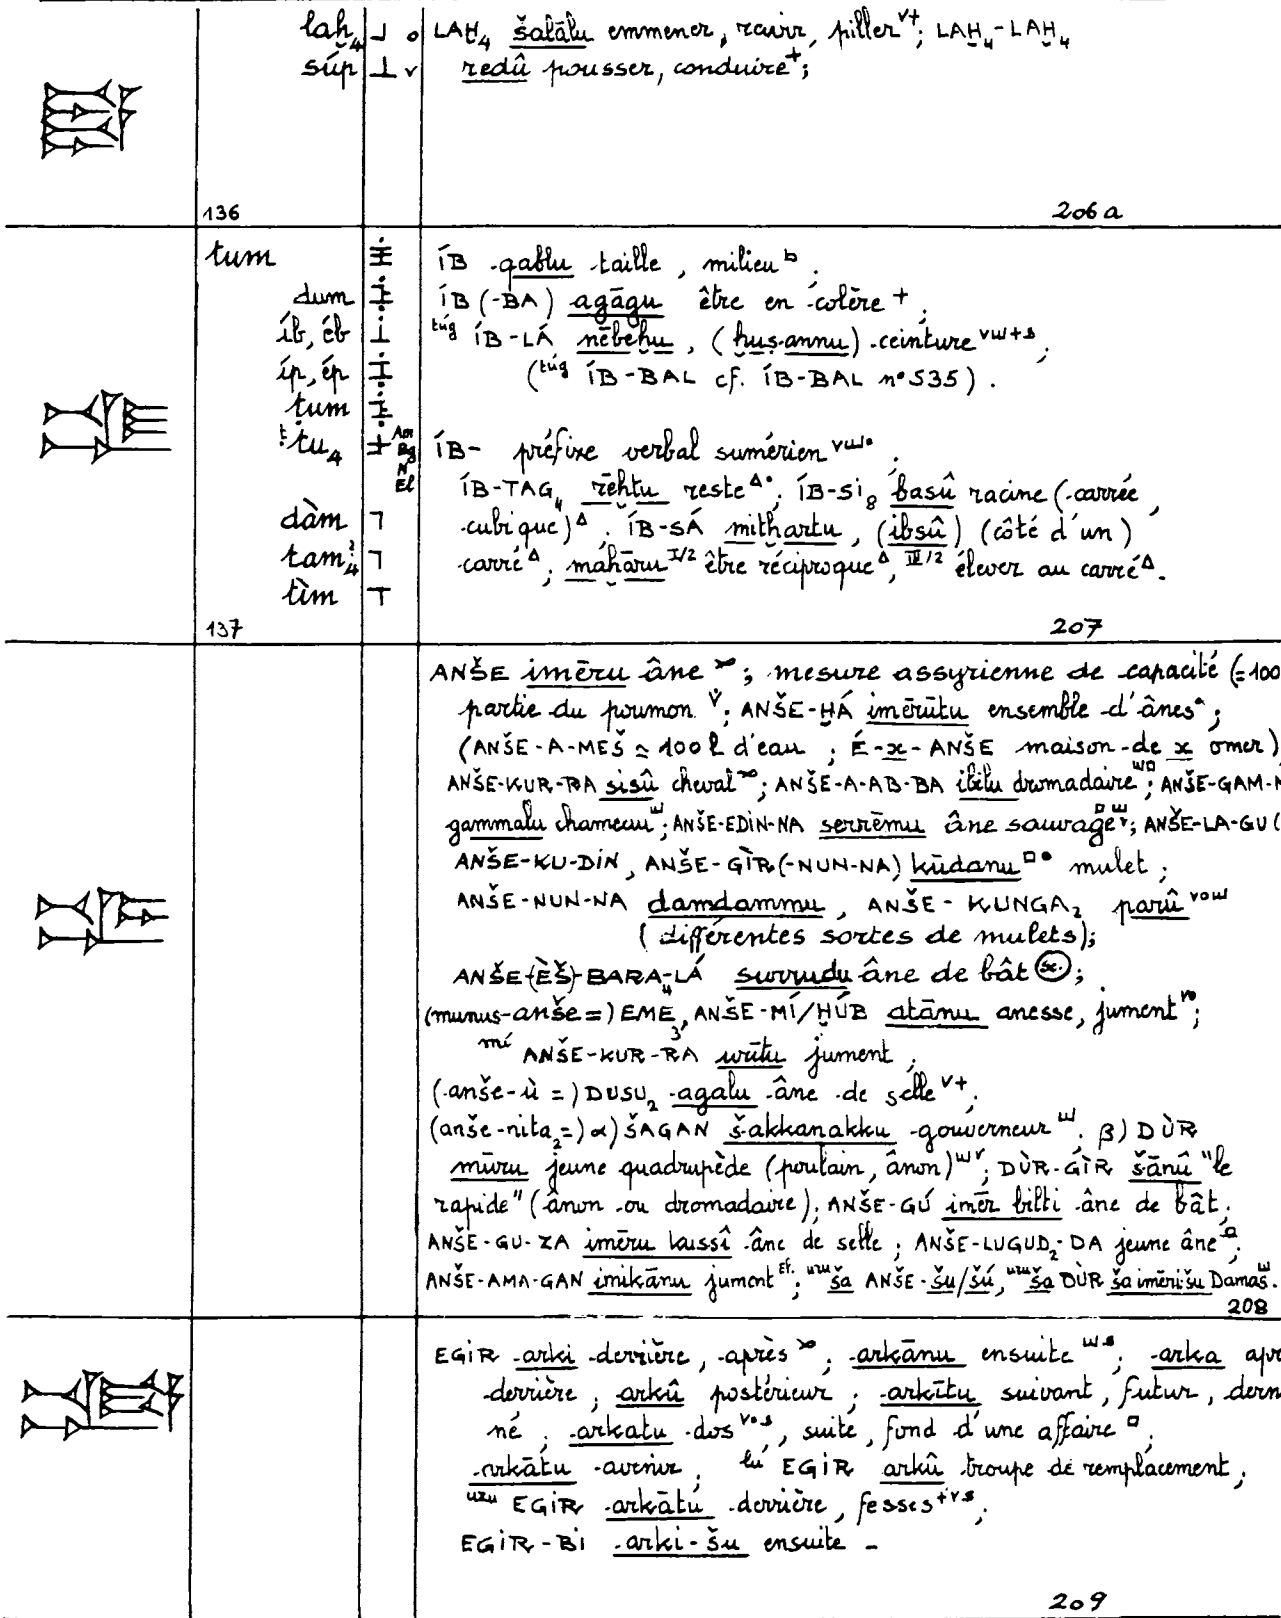 laḫ₄ LAḪ₄ šalālu emmener, ravir, piller v+; LAḪ₄-LAḪ₄
súp redû pousser, conduire +;
136 206a
tum ÍB qablu taille, milieu b;
dum ÍB (-BA) agāgu être en colère +;
íb, éb túg ÍB-LÁ nēbeḫu, (ḫuṣannu) ceinture
íp, ép (túg ÍB-BAL cf. ÍB-BAL n° 535).
ṭum
ṭu₄ ÍB- préfixe verbal sumérien
ÍB-TAG₄ rēḫtu reste; ÍB-SI₈ basû racine (carrée,
dàm cubique) Δ. ÍB-SÁ mitḫartu, (ibsû) (côté d'un)
tam₄ carré Δ; maḫāru I/2 être réciproque Δ, III/2 élever au carré Δ.
tìm
137 207
ANŠE imēru âne; mesure assyrienne de capacité (=100
partie du poumon; ANŠE-ḪÁ imērūtu ensemble d'ânes;
(ANŠE-A-MEŠ ≃ 100 l d'eau; É-x-ANŠE maison de x omer)
ANŠE-KUR-RA sisû cheval; ANŠE-A-AB-BA ibilu dromadaire; ANŠE-GAM-
gammalu chameau; ANŠE-EDIN-NA serrēmu âne sauvage; ANŠE-LA-GU (
ANŠE-KU-DIN, ANŠE-GÌR(-NUN-NA) kūdanu mulet;
ANŠE-NUN-NA damdammu, ANŠE-KUNGA₂ parû
(différentes sortes de mulets);
ANŠE-(ÈŠ)-BARA₄-LÁ surrudu âne de bât (sc.);
(munus-anše=) EME₃, ANŠE-MÍ/ḪÚB atānu anesse, jument;
mí ANŠE-KUR-RA urītu jument;
(anše-ù =) DUSU₂ agalu âne de selle v+;
(anše-nita₂=) α) ŠAGAN šakkanakku gouverneur; β) DÙR
mūru jeune quadrupède (poulain, ânon); DÙR-GÌR šānû "le
rapide" (ânon ou dromadaire); ANŠE-GÚ imēr bilti âne de bât;
ANŠE-GU-ZA imēru kussî âne de selle; ANŠE-LUGUD₂-DA jeune âne;
ANŠE-AMA-GAN imikānu jument El.; uru ša ANŠE-šu/šú, uru ša DÙR ša imērišu Damas.
208
EGIR arki derrière, après; arkānu ensuite; arka apr
derrière; arkû postérieur; arkītu suivant, futur, dern
né; arkatu dos, suite, fond d'une affaire;
arkātu avenir; lú EGIR arkû troupe de remplacement;
uzu EGIR arkātu derrière, fesses;
EGIR-BI arki-šu ensuite -
209